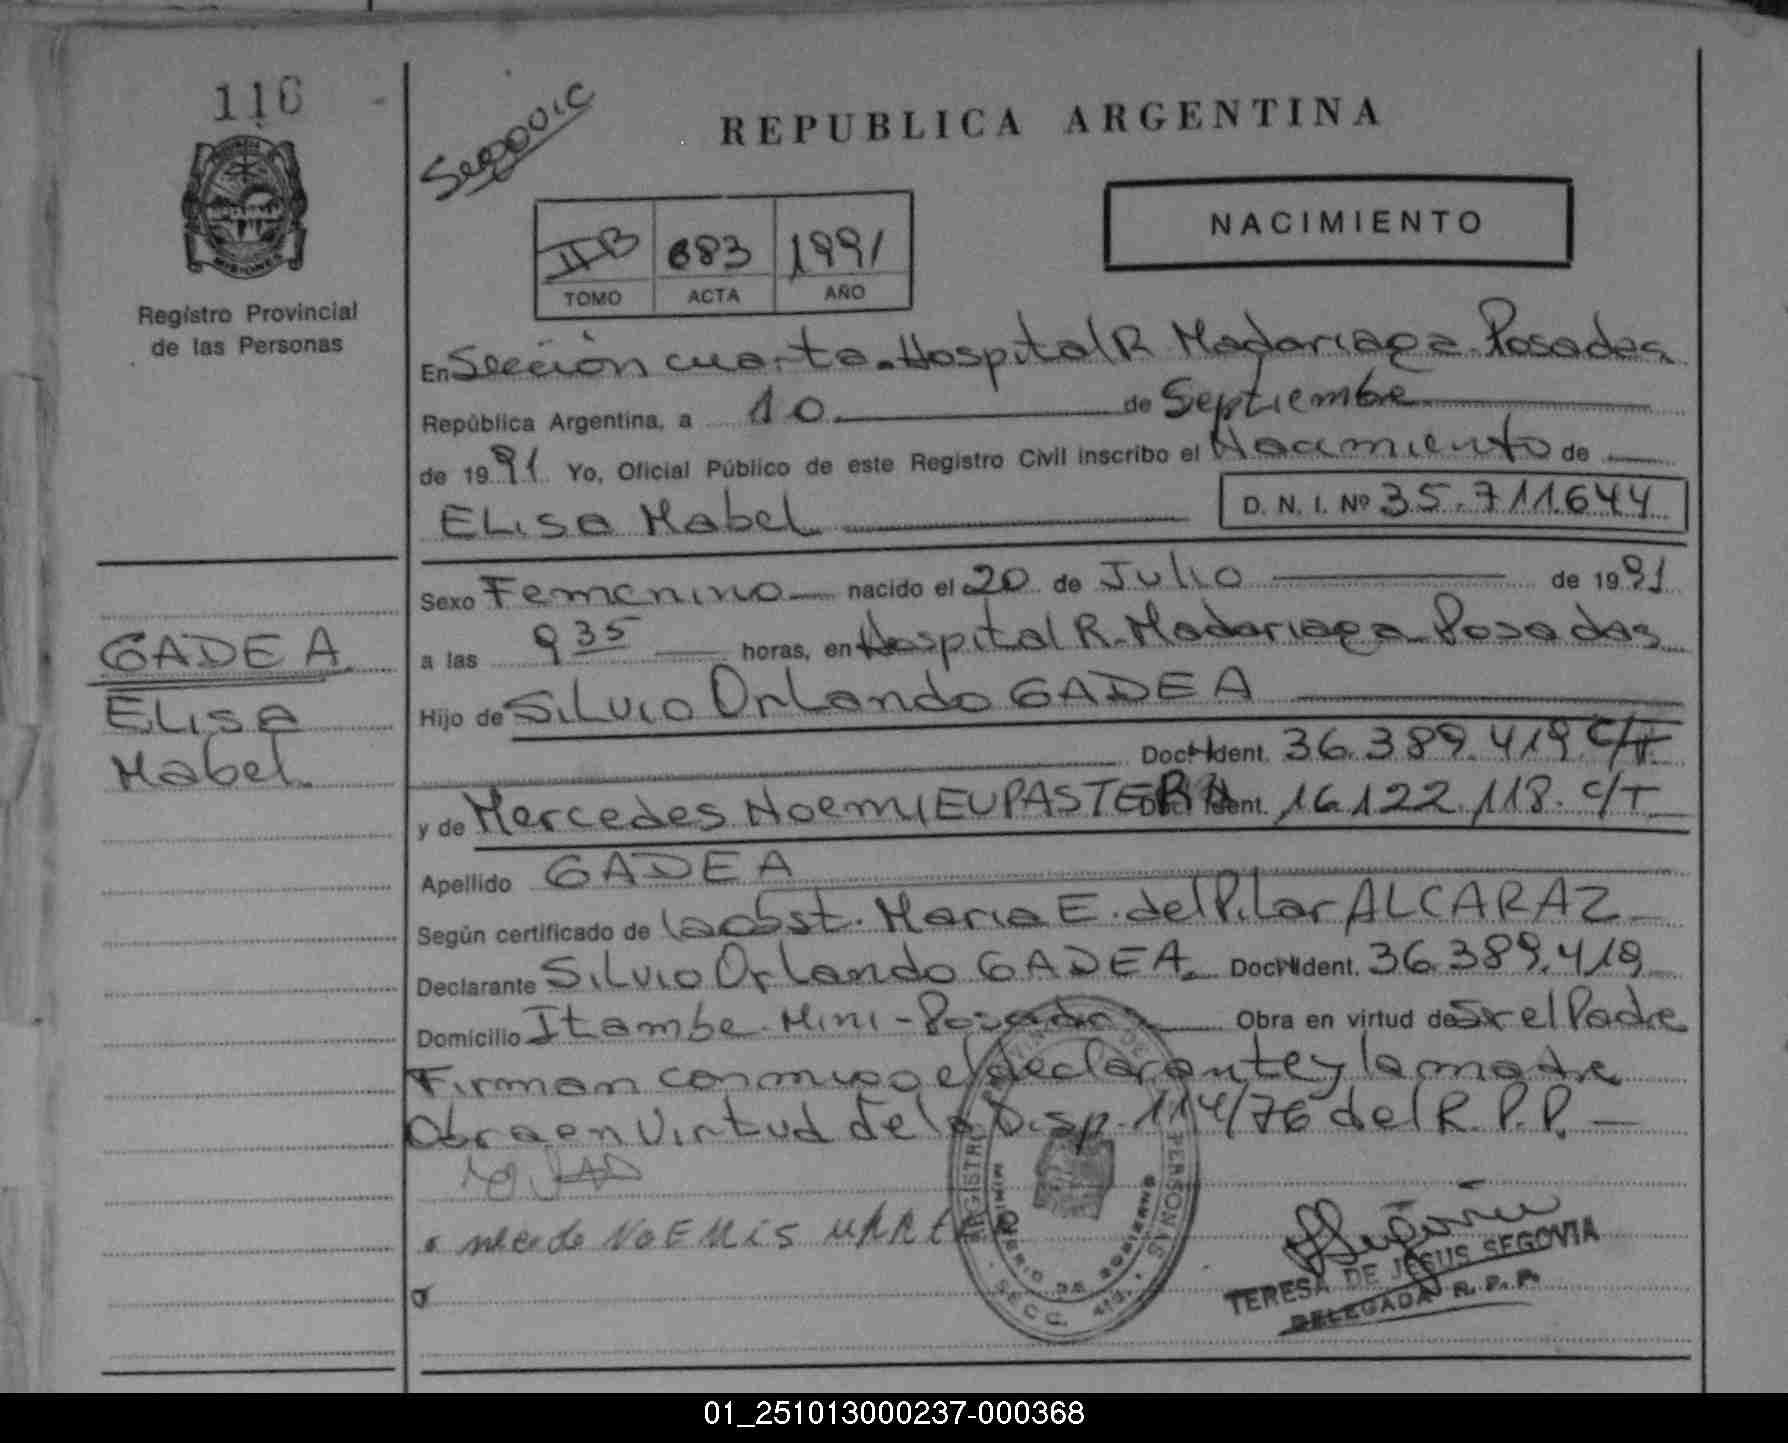 116
REPUBLICA ARGENTINA
NACIMIENTO
II B 683 1991
TOMO ACTA AÑO
MISIONES
Registro Provincial
de las Personas
En Sección cuarta. Hospital R Madariaga Posadas
República Argentina, a 10 de Septiembre
de 1991 Yo, Oficial Público de este Registro Civil inscribo el Nacimiento de
ELisa Mabel D. N. I. Nº 35.711.644
Sexo Femenino nacido el 20 de Julio de 1991
a las 9 35 horas, en Hospital R. Madariaga Posadas
Hijo de SiLvio OrLando GADEA
Doc. Ident. 36.389.419. C/T.
y de Mercedes Noemi EUPASTERRA Ident. 16.122.118. C/T
Apellido GADEA
Según certificado de la obst. Maria E. del PiLar ALCARAZ
Declarante SiLvio OrLando GADEA. Doc. Ident. 36.389.419
Domicilio Itambe Mini - Posadas Obra en virtud de Sr el Padre
Firman conmigo el declarante y la madre
Obra en Virtud de la Disp. 114/76 del R.P.P. —
GADEA
ELisa
Mabel
REGISTRO PERSONAS
MINISTERIO DE GOBIERNO
SECC. 4ta.
TERESA DE JESUS SEGOVIA
DELEGADA R.P.P.
01_251013000237-000368